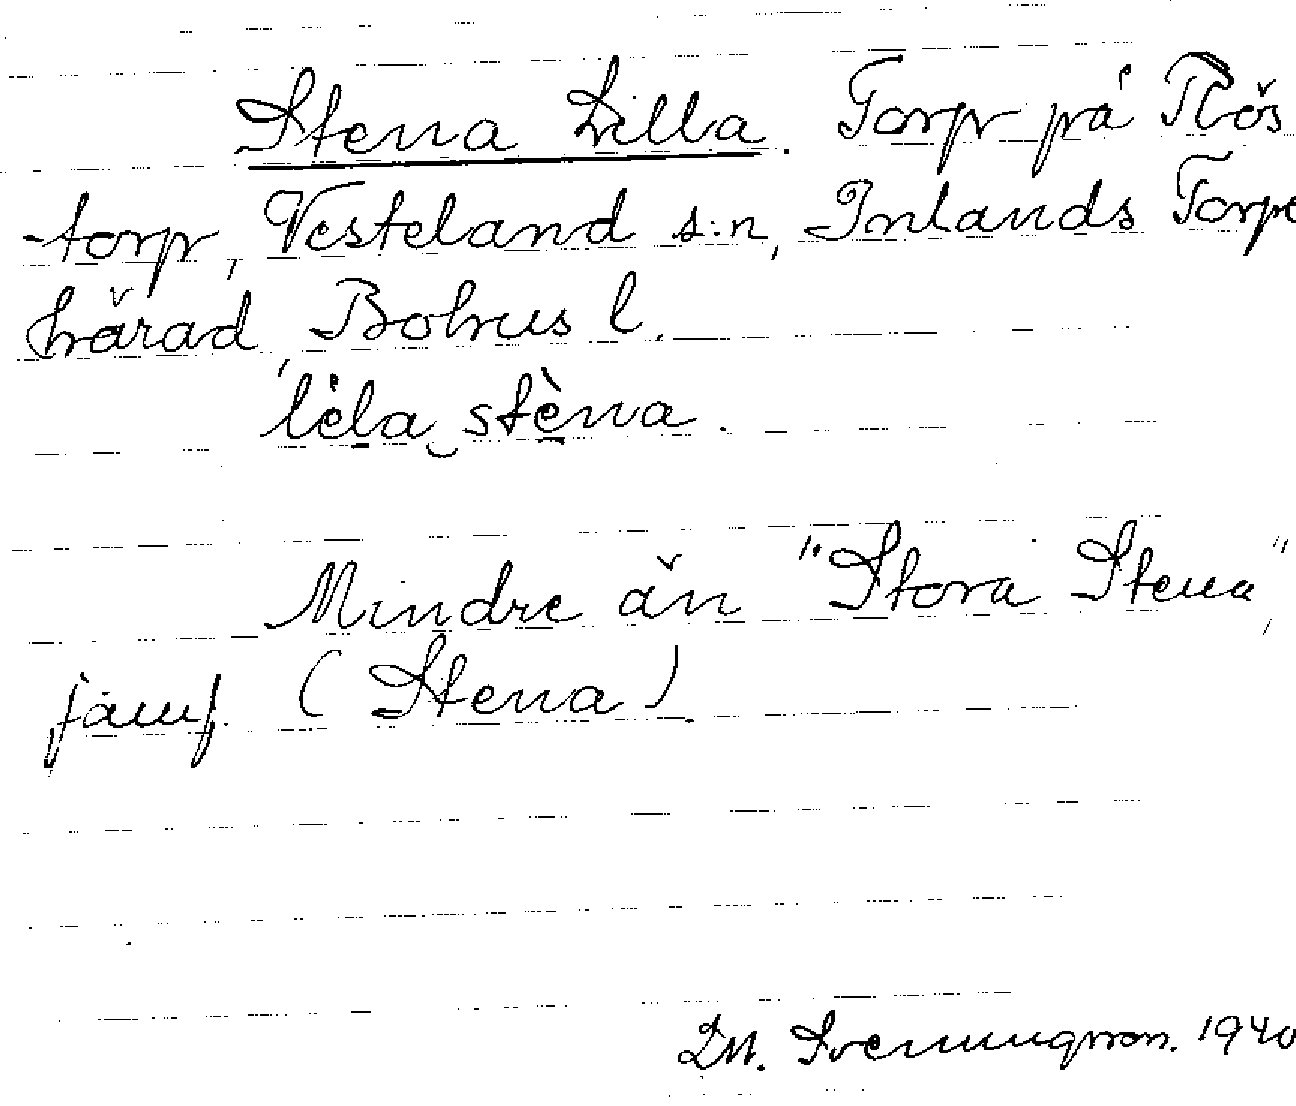 Stena Lilla. Torp på Rös
-torp, Vesteland s:n, Inlands Torpe
härad, Bohus l.
lela stèna.
Mindre än "Stora Stena",
jämf. (Stena).
Svenungsson. 1940